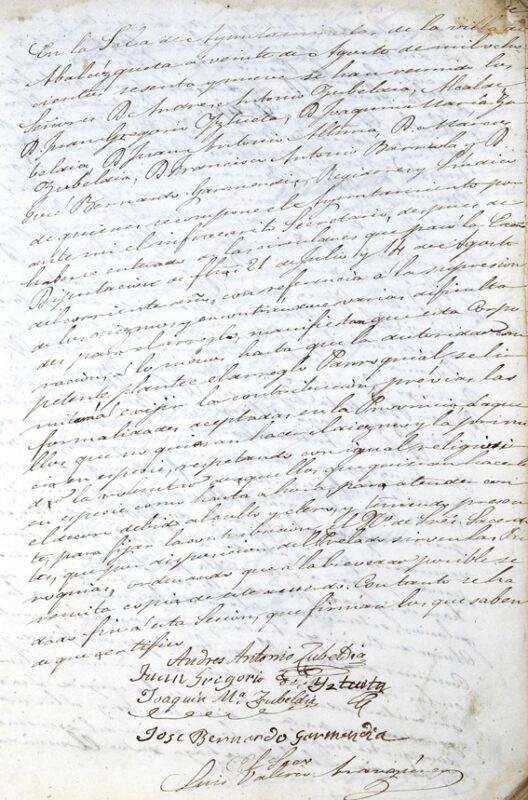 En la Sala de Ayuntamientos de la villa de
Abalcizqueta a veinte de Agosto de mil ocho
cientos sesenta y nueve se han reunido los
Señores D. Andres Antonio Zubeldia, Alcalde
D. Juan Gregorio Yztueta, D. Joaquin Maria Zu
beldia, D. Juan Antonio D. Marcos
Zubeldia, D. Francisco Antonio y D.
José Bernardo Garmendia, Regidores y Sindico
de quienes se compone el Ayuntamiento por
ante mi el infrascrito Secretario, despues de
haberse enterado de las circulares que pasó la
Diputacion de fha. 21 de Julio y 14 de Agosto
del corriente año, con referencia a la supresion
de los diezmos y encontrandose varias dificulta
des para el arreglo, manifiestan que esta Corpo
racion, a lo menos hasta que la autoridad com
petente plantee el arreglo Parroquial, se li
mitará exijir la contribucion, prévias las
formalidades aceptadas en la Provincia, á aque
llos que no quieran hacer el diezmo y la primi
cia en especie, respetando con igual religiosi
dad la voluntad de aquellos que quieran hacerlo
en especie como hasta ahora para atender con
el decoro debido al culto y clero, y teniendo presen
te, para fijar la contribucion, el Nº de tres Sacerdo
tes, que por disposicion del Prelado sirven las Par
roquias, ordenando que a la brevedad posible se
remita copia de este acuerdo. Con tanto se ha
dado fin a esta Sesion, que firmarán los que saben
de que certifico
Andres Antonio Zubeldia
Juan Gregorio de Yztueta
Joaquin Mª Zubeldia
Jose Bernardo Garmendia
Luis Valerio